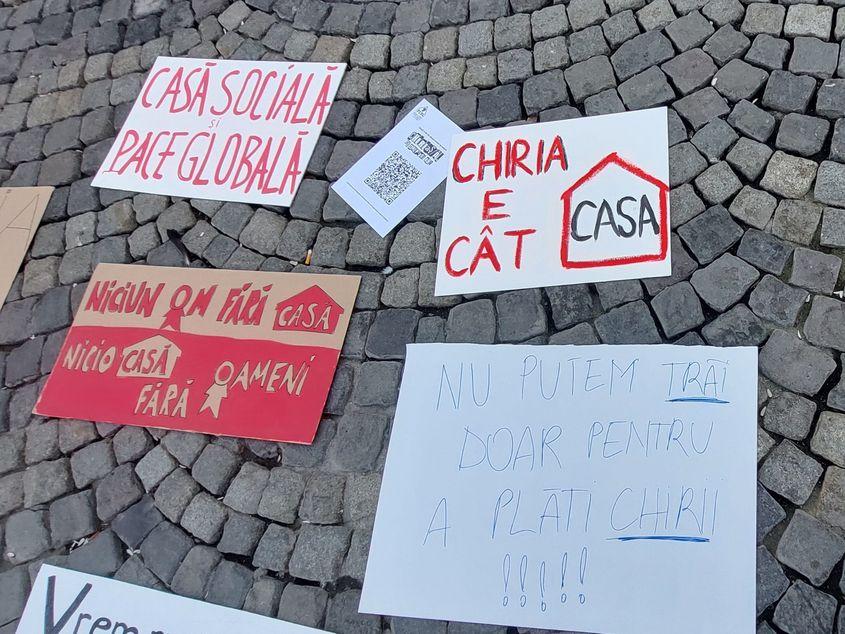 CASĂ SOCIALĂ
și
PACE GLOBALĂ
CHIRIA
E
CÂT
CASA
NICIUN OM FĂRĂ CASĂ
NICIO CASĂ
FĂRĂ OAMENI
NU PUTEM TRĂI
DOAR PENTRU
A PLĂTI CHIRII
!!!!!
Vrem